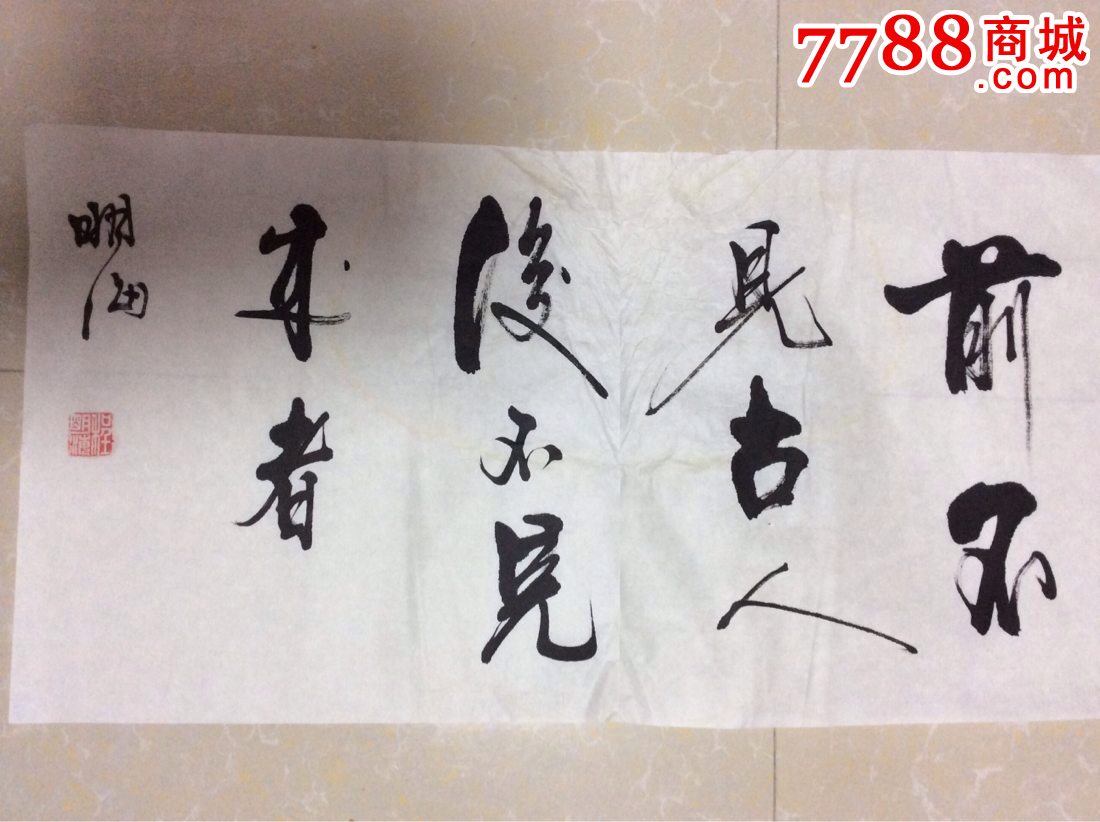 7788商城
.com
前不
見古人
後不見
来者
明海